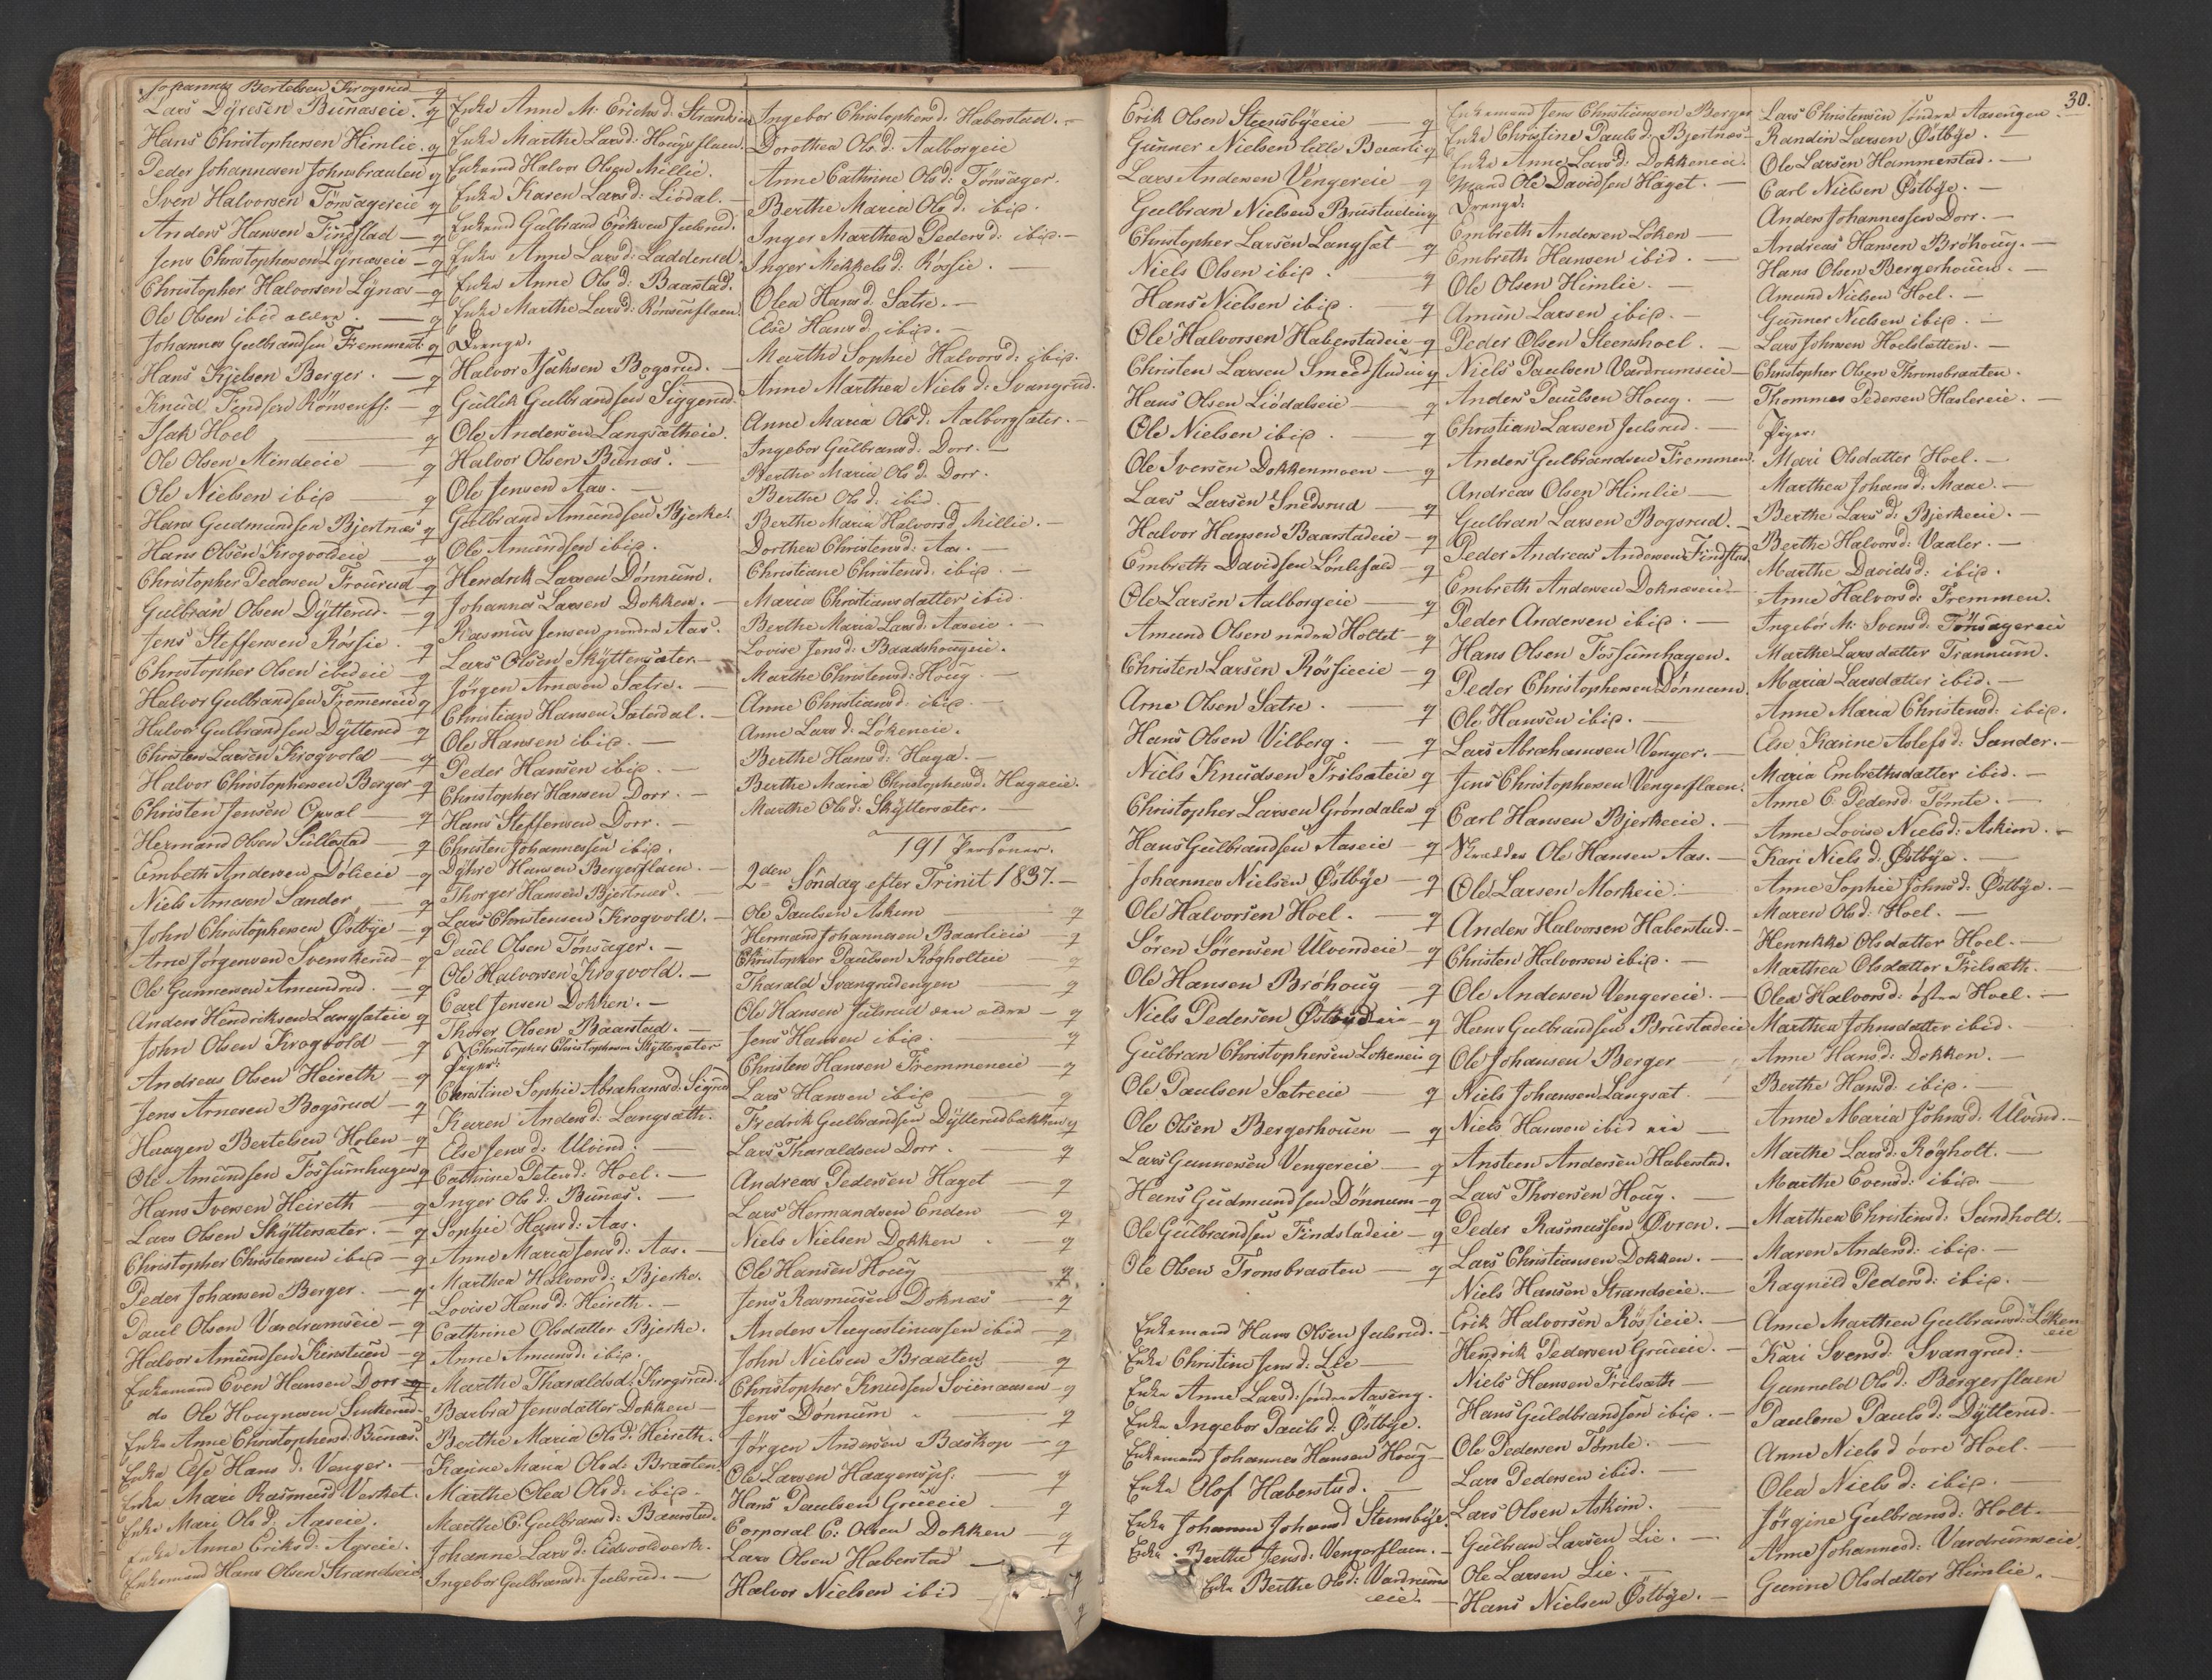 Johannes Bertelsen Krogsrud q
Lars Dyresen Bunæseie q
Hans Christophersen Himlie q
Peder Johannesen Johnsbraaten q
Sven Halvorsen Tönsagereie q
Anders Hansen Findstad q
Jens Christophersen Lynæseie q
Christopher Halvorsen Lynæs q
Ole Olsen ibid ældre q
Johannes Gulbrandsen Fremmen q
Hans Kjelsen Berger q
Knud Findsen
Isak Hoel q
Ole Olsen Mindeeie q
Ole Nielsen ibid q
Hans Gudmundsen Bjertnæs q
Hans Olsen Krogvoldeie q
Christopher Pedersen Frourud q
Gulbran Olsen Dytterud q
Jens Steffensen Rössie q
Christopher Olsen ibid eie q
Halvor Gulbrandsen Fremmeneie q
Halvor Gulbrandsen Dytterud q
Christen Larsen Krogvold q
Halvor Christophersen Berger q
Christen Jensen Opsal q
Hermand Olsen Sullestad q
Embeth Andersen Dölieie q
Niels Arnesen Sander q
John Christophersen Østbye q
Arne Jörgensen Svenskerud q
Ole Gunnersen Amundrud q
Anders Hendriksen Langsæteie q
John Olsen Krogvold q
Andreas Olsen Heireth q
Jens Arnesen Bogsrud q
Haagen Bertelsen Holen q
Ole Amundsen Fossumhagen q
Hans Iversen Heireth q
Lars Olsen Skyttersæter q
Christopher Christensen ibid q
Peder Johansen Berger q
Paul Olsen Vardrumseie q
Halvor Amundsen Finstuen q
Enkemand Even Hansen Dorr q
do Ole Hougnesen
Enke Anne Christophersd: Bunæs.
Enke Else Hans d: Venger.
Enke Mari Rasmusd Verket.
Enke Mari Ols d: Aaseie.
Enke Anne Eriksd:
Enkemand Hans Olsen Strandseie
Enke Anne M: Erichsd: Strandseie
Enke Marthe Larsd: Hougsflaen.
Enkemd Halvor Olsen Millie.
Enke Karen Larsd: Liödal.
Enkemd Gulbrand Eriksen Julsrud.
Enke Anne Larsd: Ladderud.
Enke Anne Ols d: Baarstad.
Enke Marthe Larsd: Rönsenflaen
Drenge:
Halvor Isaksen Bogsrud.
Gullik Gulbrandsen Siggerud.
Ole Andersen Langsætheie.
Halvor Olsen Bunæs.
Ole Jensen Aas.
Gulbrand Amundsen Bjerke.
Ole Amundsen ibid.
Hendrik Larsen Dönnum.
Johannes Larsen Dokken.
Rasmus Jensen nordre Aas.
Lars Olsen Skyttersæter.
Jörgen Arnesen Sætre.
Christian Hansen Säterdal.
Ole Hansen ibid.
Peder Hansen ibid.
Christopher Hansen Dorr.
Hans Steffensen Dorr.
Christen Johannessen ibid.
Dyhre Hansen Bergerflaen.
Thorger Hansen Bjertnæs.
Lars Christensen Krogvold.
Paul Olsen Tönsager.
Ole Halvorsen Krogvold.
Carl Jensen Dokken.
Thorer Olsen Baarstad.
Christopher Christophersen Skyttersæter
Piger:
Christine Sophie Abrahamsd: Sigrud
Karen Andersd: Langsæth.
Else Jensd: Ulvind.
Cathrine Petersd: Hoel.
Inger Ols d: Bunæs.
Sophie Hansd: Aas.
Anne Maria Jensd: Aas.
Marthea Halvorsd: Bjerke.
Lovise Hansd: Heireth.
Cathrine Olsdatter Bjerke.
Anne Amunsd: ibid.
Marthe Tharaldsd: Krogsrud.
Barbra Jensdatter Dokken
Berthe Maria Olsd: Heireth.
Karine Maria Olsd: Braaten.
Marthe Olea Olsd: ibid.
Marthe C: Gulbransd: Baarstad.
Johanne Larsd: Eidsvoldverk.
Ingebor Gulbransd: Julsrud.
Ingebor Christophersd: Haberstad.
Dorothea Ols d: Aalborgeie
Anne Cathrine Olsd: Tönsager.
Berthe Maria Ols d: ibid.
Inger Marthea Pedersd: ibid.
Inger Mekkelsd: Rössie.
Olea Hansd: Sætre.
Else Hansd: ibid.
Marthe Sophie Halvorsd: ibid.
Anne Marthea Niels d: Svangrud.
Anne Maria Olsd: Aalborgsæter.
Ingebor Gulbransd: Dorr.
Berthe Maria Ols d: Dorr
Berthe Ols d: ibid.
Berthe Maria Halvorsd: Millie.
Dorthea Christensd: Aas.
Christiane Christensd: ibid.
Maria Christiansdatter ibid.
Berthe Maria Larsd: Aaseie.
Lovise Jensd: Baadshougeie.
Marthe Christensd: Houg.
Anne Christiansd: ibid.
Anne Larsd: Lökeneie.
Berthe Hansd: Haga.
Berthe Maria Christophersd: Hagaeie.
Marthe Olsd: Skyttersæter.
191 Personer.
2den Söndag efter Trinit 1837.
Ole Paulsen Askim q
Hermand Johannesen Baarlieie q
Christopher Paulsen Rögholteie q
Tharald Svangrudengen q
Ole Hansen Julsrud den ældre q
Jens Hansen ibid. q
Christen Hansen Fremmeneie q
Lars Hansen ibid q
Fredrik Gulbrandsen Dytterudbækken q
Lars Tharaldsen Dorr q
Andreas Pedersen Haget q
Lars Hermandsen Enden q
Niels Nielsen Dokken q
Ole Hansen Houg q
Jens Rasmussen Doknæs q
Anders Augustinussen ibid q
John Nielsen Braaten q
Christopher Knudsen q
Jens Dönnum q
Jörgen Andersen Baskop q
Ole Larsen q
Hans Paulsen Grueeie q
Corporal C: Olsen Dokken q
Lars Olsen Haberstad q
Halvor Nielsen ibid q
30.
Erik Olsen Steensbyeeie q
Gunner Nielsen lille Baarli q
Lars Andersen Vengereie q
Gulbran Nielsen Brustadeie q
Christopher Larsen Langsæt q
Niels Olsen ibid. q
Hans Nielsen ibid. q
Ole Halvorsen Haberstadeie q
Christen Larsen Smedstueie q
Hans Olsen Liödalseie q
Ole Nielsen ibid. q
Ole Iversen Dokkenmoen q
Lars Larsen Snedsrud q
Halvor Hansen Baarstadeie q
Embreth Davidsen q
Ole Larsen Aalborgeie q
Amund Olsen nedre Holtet q
Christen Larsen Rössieeie q
Arne Olsen Sætre. q
Hans Olsen Vilberg. q
Niels Knudsen Frilsæteie q
Christopher Larsen Gröndalen q
Hans Gulbrandsen Aaseie q
Johannes Nielsen Østbye q
Ole Halvorsen Hoel. q
Sören Sörensen Ulvendeie q
Ole Hansen Bröhoug q
Niels Pedersen Østbyeeie q
Gulbran Christophersen Lökeneie q
Ole Paulsen Sætreeie q
Ole Olsen Bergerhouen q
Lars Gunnersen Vengereie q
Hans Gudmundsen Dönnum q
Ole Gulbrandsen Findstadeie q
Ole Olsen Tronsbraaten q
Enkemand Hans Olsen Julsrud.
Enke Christine Jensd: Lie
Enke Anne Larsd: söndre Aaseng.
Enke Ingebor Paulsd: Østbye.
Enkemand Johannes Hansen Houg
Enke Olof Haberstad.
Enke Johanne Johansd Steensbye.
Enke Berthe Jensd: Vengerflaen.
Enke Berthe Olsd: Vardrums
eie.
Enkemand Jens Christiansen Berger
Enke Christine Paulsd: Bjertnæs.
Enke Anne Larsd: Dokkeneie.
Mand Ole Davidsen Haget.
Drenge:
Embreth Andersen Löken
Embreth Hansen ibid.
Ole Olsen Himlie.
Amun Larsen ibid.
Peder Olsen Steenshoel.
Niels Paulsen Vardrumseie
Anders Poulsen Houg.
Christian Larsen Julsrud.
Anders Gulbrandsen Fremmen.
Andreas Olsen Himlie
Gulbran Larsen Bogsrud.
Peder Andreas Andersen Findstad
Embreth Andersen Doknæseie
Peder Andersen ibid.
Hans Olsen Fossumhagen.
Peder Christophersen Dönnum.
Ole Hansen ibid.
Lars Abrahamsen Venger.
Jens Christophersen Vengerflaen.
Carl Hansen Bjerkeeie.
Skrædder Ole Hansen Aas.
Ole Larsen Morkeie
Anders Halvorsen Haberstad.
Christen Halvorsen ibid.
Ole Andersen Vengereie.
Hans Gulbrandsen Brustadeie
Ole Johansen Berger
Niels Johansen Langsæt.
Niels Hansen ibid eie
Ansteen Andersen Haberstad.
Lars Thorersen Houg.
Peder Rasmussen Øvren.
Lars Christiansen Dokken.
Niels Hansen Strandseie.
Erik Halvorsen Rössieeie.
Hendrik Pedersen Grueeie.
Niels Hansen Frilsæth
Hans Guldbrandsen ibid.
Ole Pedersen Tömte.
Lars Pedersen ibid.
Lars Olsen Askim.
Gulbran Larsen Lie.
Ole Larsen Lie.
Hans Nielsen Østbye.
Lars Christensen söndre Aasengen
Randin Larsen Østbye.
Ole Larsen Hammerstad.
Carl Nielsen Østbye.
Anders Johannessen Dorr.
Andreas Hansen Bröhoug.
Hans Olsen Bergerhouen.
Amund Nielsen Hoel.
Gunner Nielsen ibid.
Lars Johnsen Hoelsletten.
Christopher Olsen Thronsbraaten.
Thommes Pedersen Haslereie.
Piger:
Mari Olsdatter Hoel.
Marthea Johansd: Maae.
Berthe Larsd: Bjerkeeie.
Berthe Halvorsd: Vaaler.
Marthe Davidsd: ibid.
Anne Halvorsd: Fremmen.
Ingebor M: Svensd: Tönsagereie
Marthe Larsdatter Trannum.
Maria Larsdatter ibid.
Anne Maria Christensd: ibid.
Else Karine Aslefsd: Sander.
Maria Embrethsdatter ibid.
Anne C: Pedersd: Tömte.
Anne Lovise Nielsd: Askim.
Kari Niels d: Østbye.
Anne Sophie Johnsd: Østbye.
Maren Olsd: Hoel.
Hennikke Olsdatter Hoel.
Marthea Olsdatter Frilsæth.
Olea Halvorsd: östre Hoel.
Marthea Johnsdatter ibid.
Anne Hansd: Dokken.
Berthe Hansd: ibid.
Anne Maria Johnsd: Ulvind.
Marthe Larsd: Rögholt.
Marthe Evensd: ibid.
Marthea Christensd: Sundholt.
Maren Andersd: ibid.
Ragnild Pedersd: ibid.
Anne Marthea Gulbransd: Löken
eie
Kari Svensd: Svangrud.
Gunneld Ols d: Bergerflaen
Paulene Paulsd: Dytterud.
Anne Niels d övre Hoel.
Olea Niels d: ibid.
Jörgine Gulbransd: Holt.
Anne Johannesd: Vardrumseie.
Gurine Olsdatter Himlie.